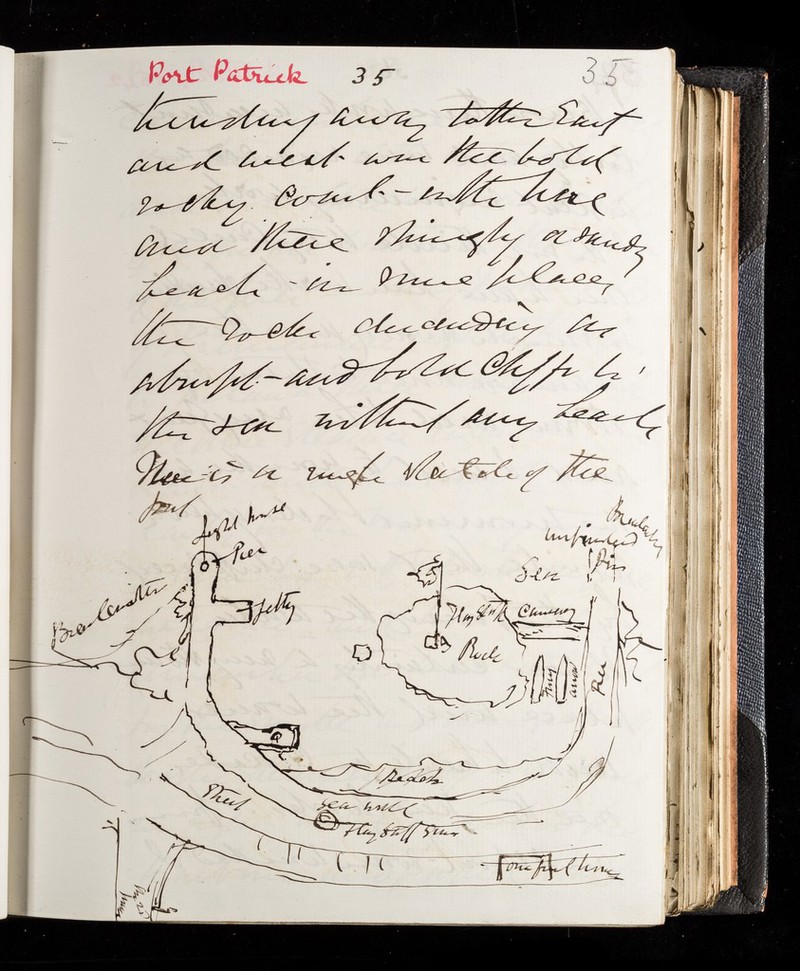 Port Patrick 35 35
trending away to the East
and west was the bold
rocky coast - with here
and there shingly or sandy
beach - in some places
the rocks descending as
abrupt - and bold cliffs to
the sea without any beach
Here is a rough sketch of the
port
Light house
Pier
Jetty
Breakwater
Sea
unfinished
Pier
Flagstaff
Rock
Causeway
Pier
Rocks
Street
Sea wall
Flag Staff